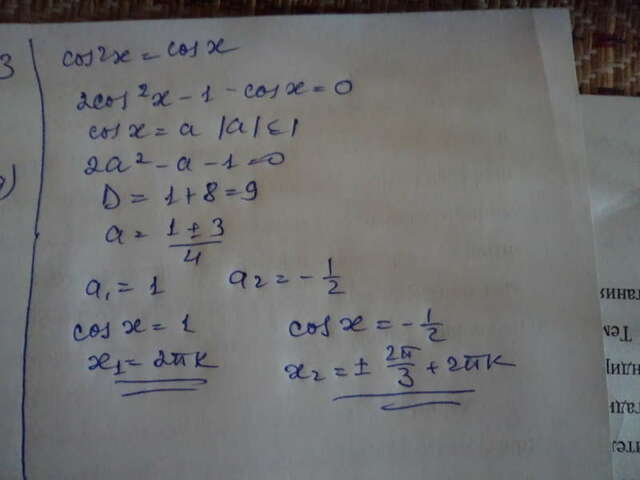 3
cos2x = cosx
2cos²x - 1 - cosx = 0
cosx = a |a| ≤ 1
2a² - a - 1 = 0
D = 1 + 8 = 9
)
a = (1 ± 3)/4
a₁ = 1 a₂ = - 1/2
cosx = 1 cosx = - 1/2
x₁ = 2πk x₂ = ± 2π/3 + 2πk
тания
Тем
ндир
гади
ител